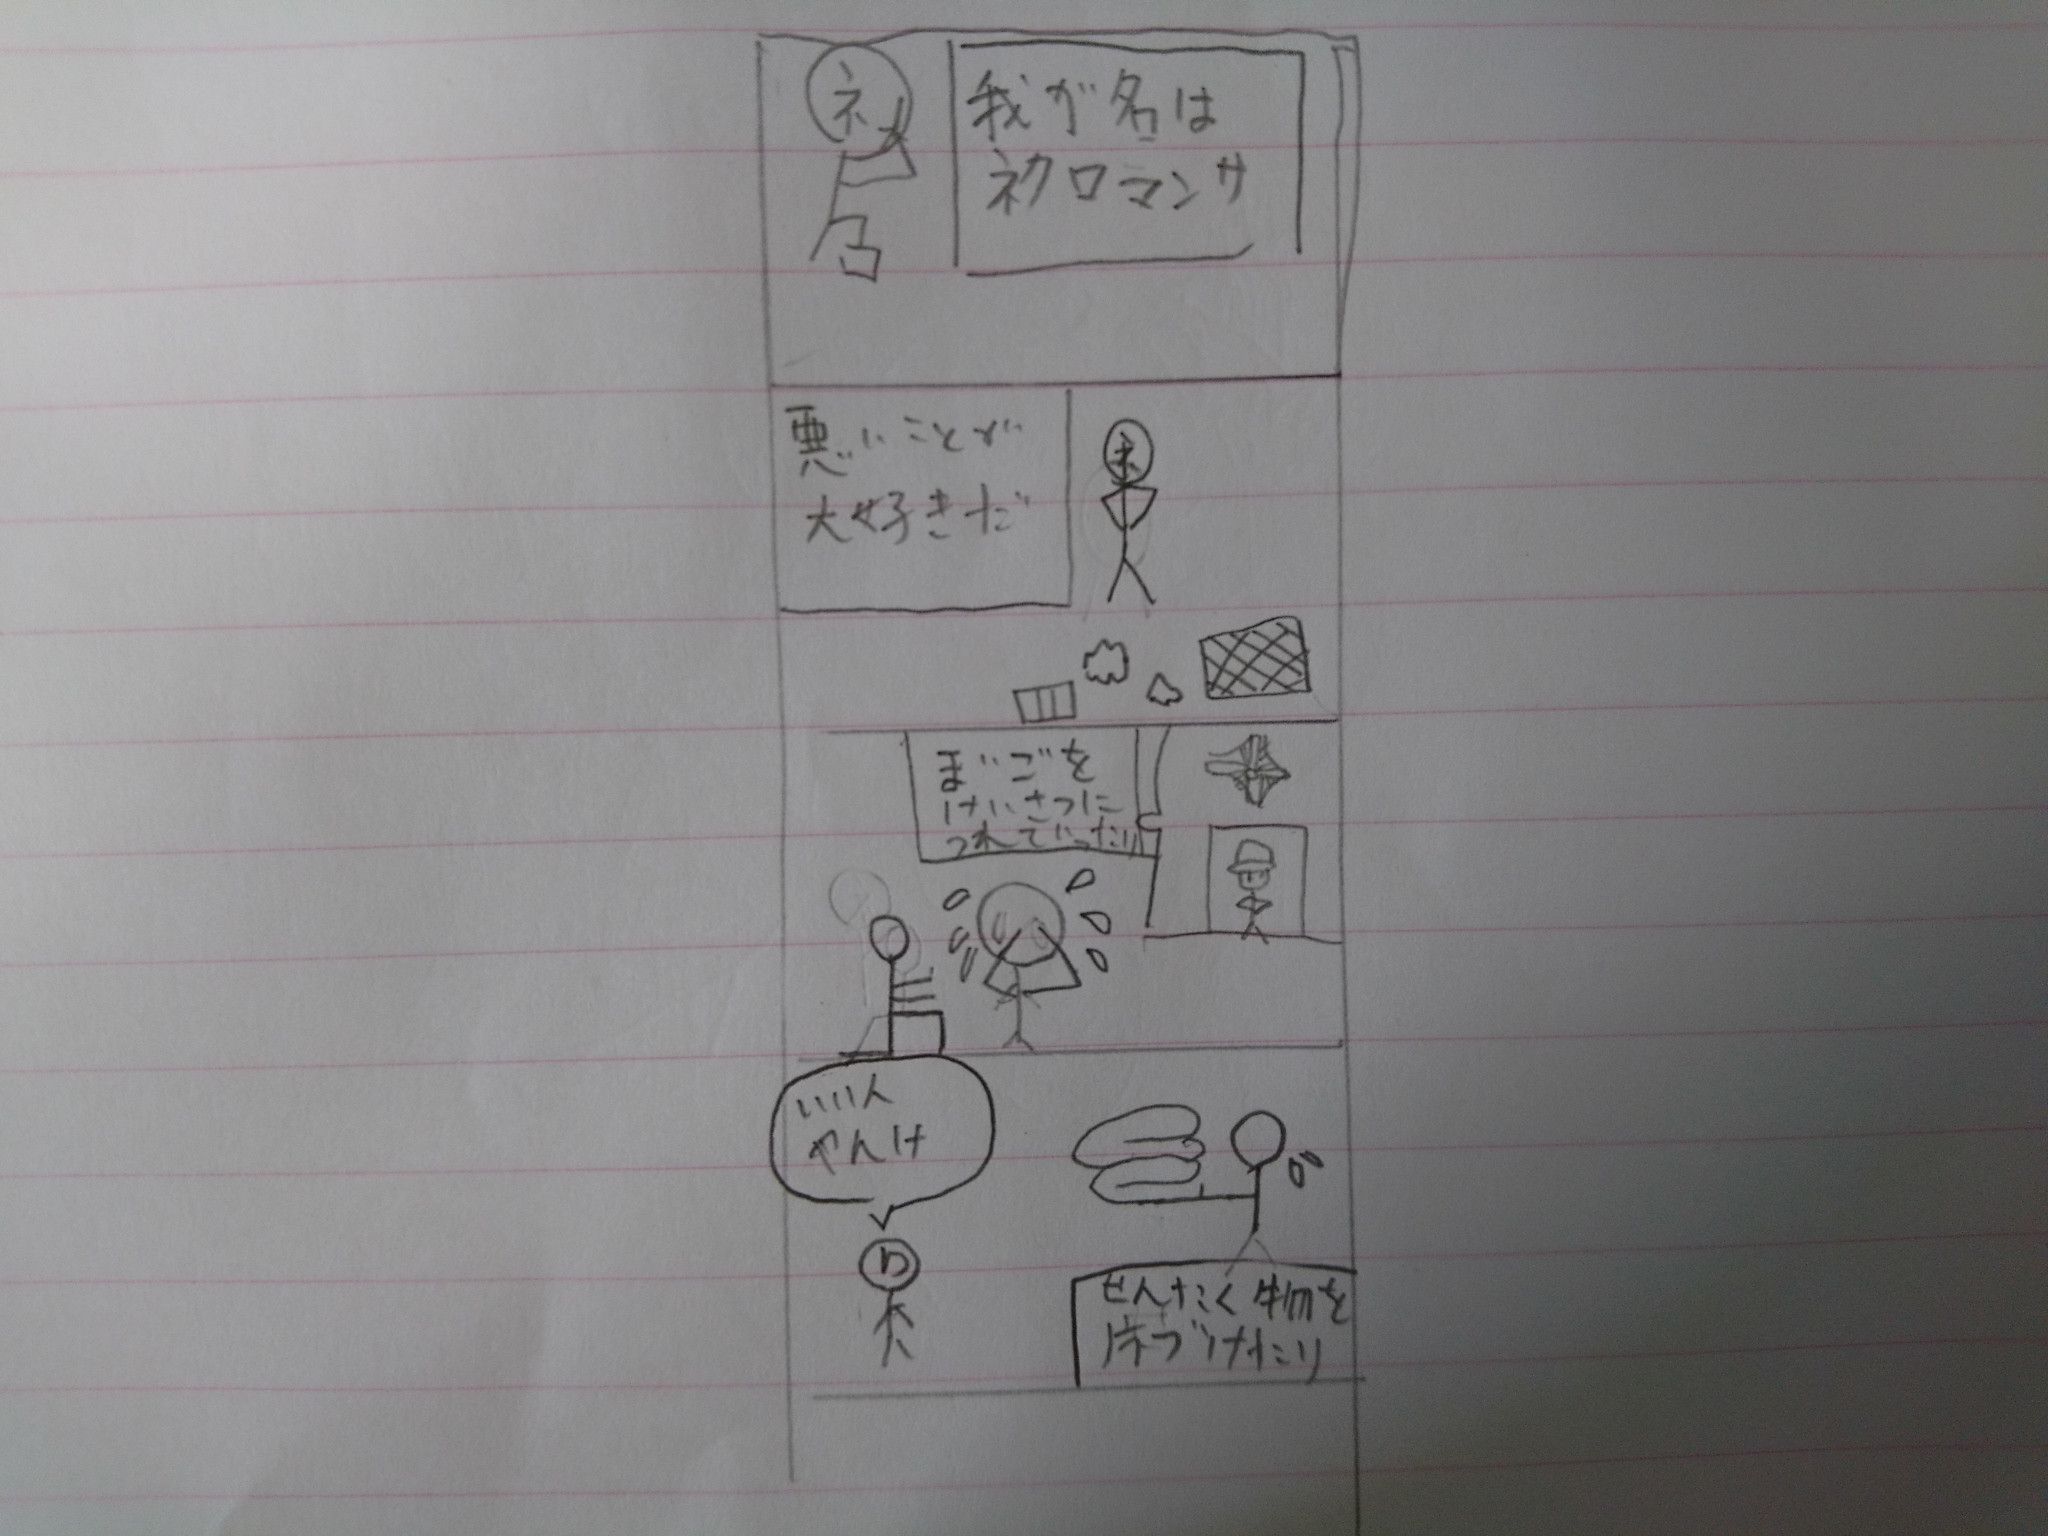 ネ
我が名は
ネクロマンサ
悪いことが
大好きだ
ネ
まいごを
けいさつに
つれていったり
いい人
やんけ
わ
せんたく物を
片づけたり